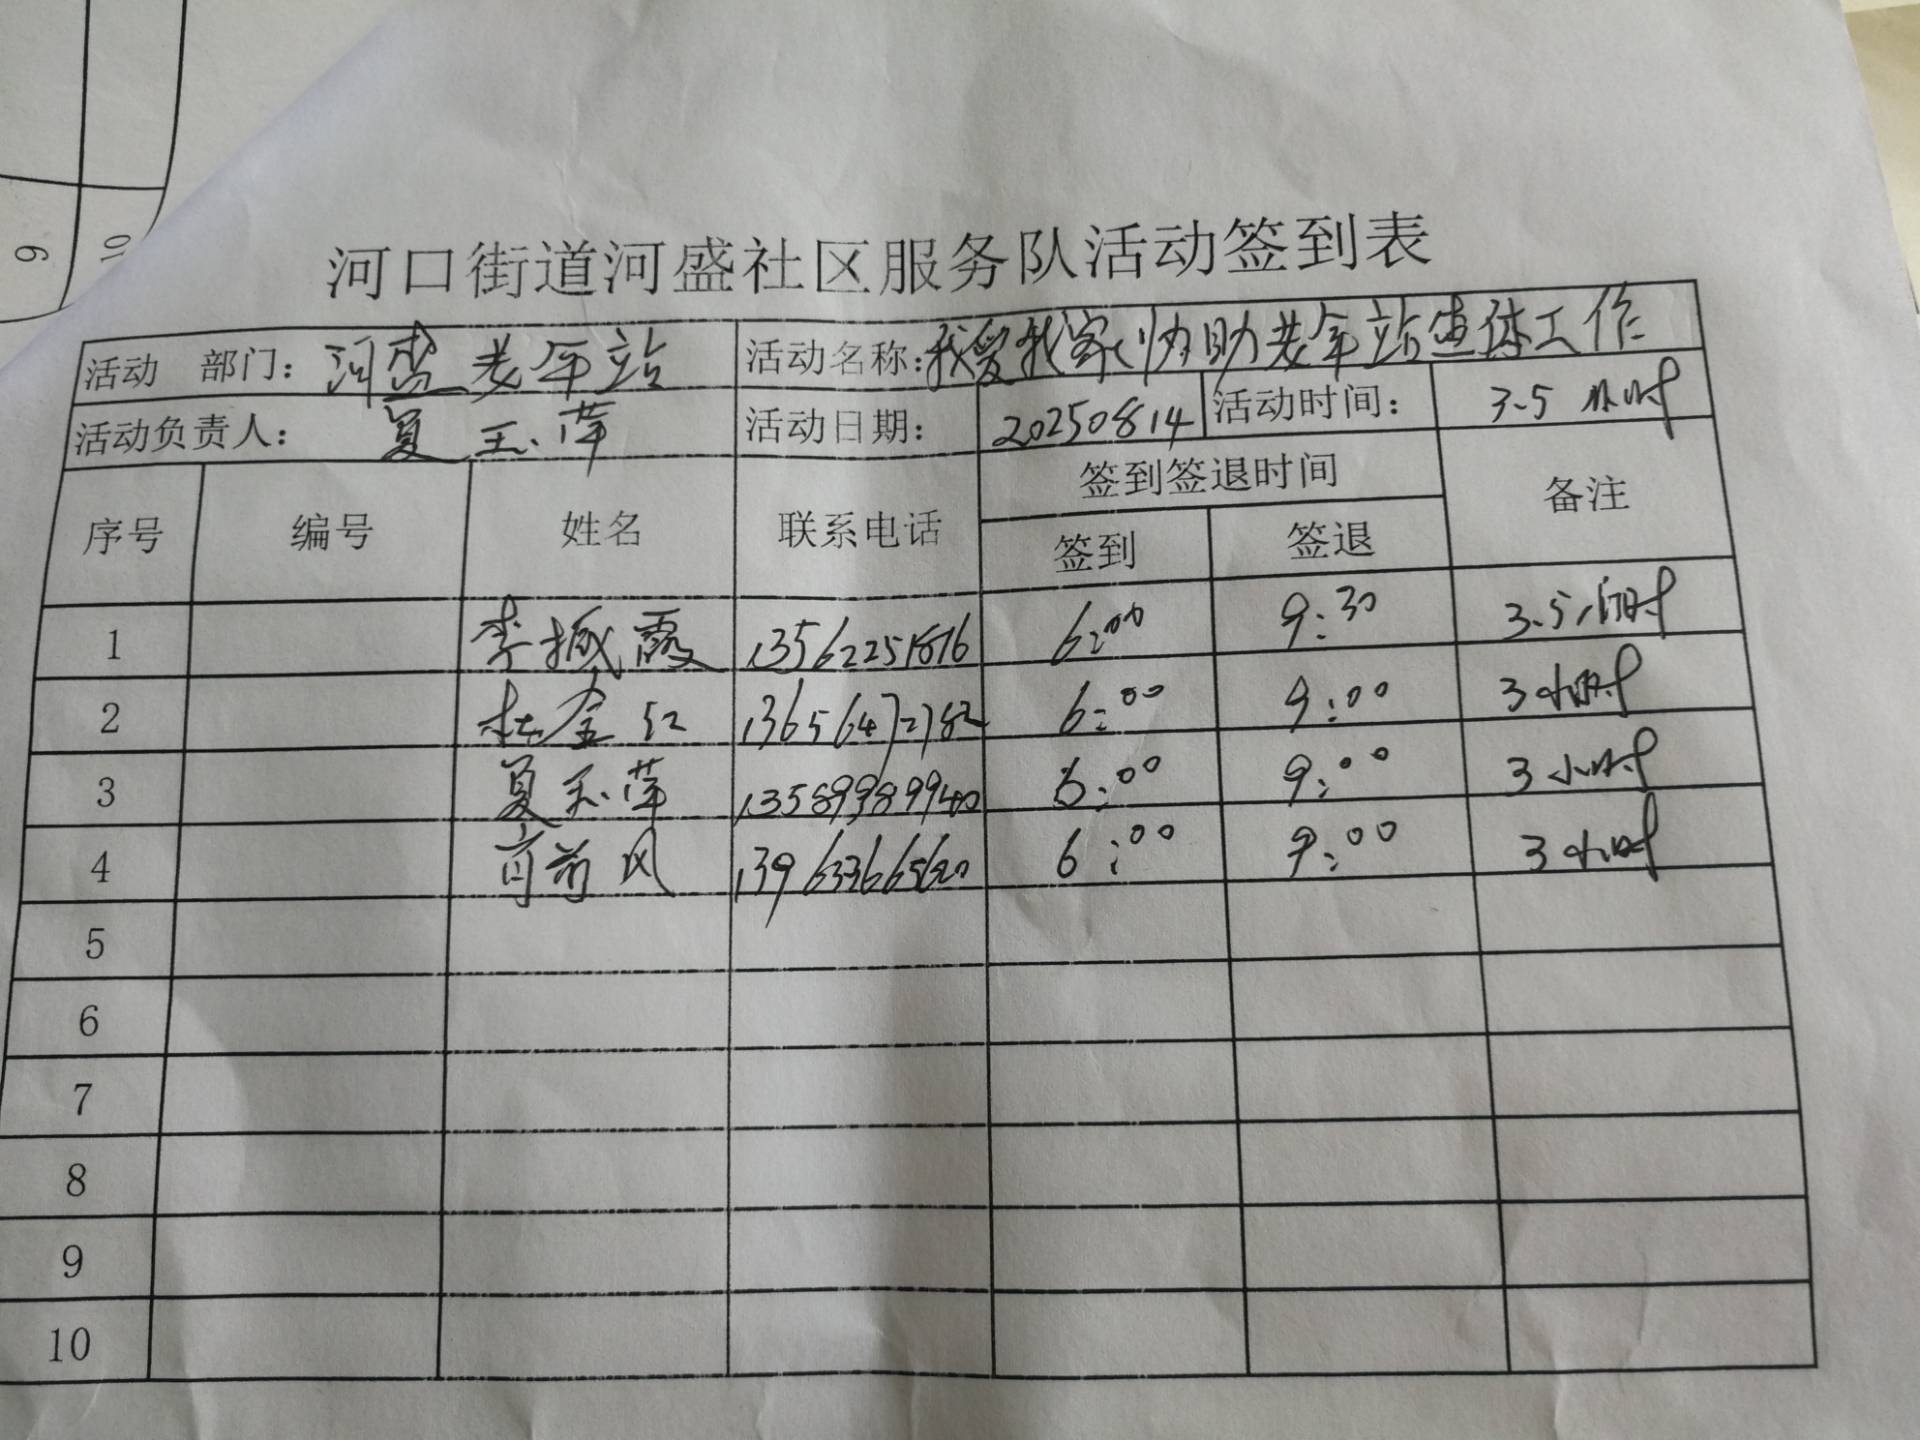 9
10
河口街道河盛社区服务队活动签到表
活动 部门: 河盛老年站 活动名称: 我爱我家,协助老年站集体工作
活动负责人: 夏玉萍 活动日期: 20250814 活动时间: 3.5 小时
序号 编号 姓名 联系电话 签到签退时间 备注
签到 签退
1 李 霞 13562251816 6:00 9:30 3.5小时
2 杜金红 13656472782 6:00 9:00 3小时
3 夏玉萍 13589989940 6:00 9:00 3小时
4 13963366562 6:00 9:00 3小时
5
6
7
8
9
10